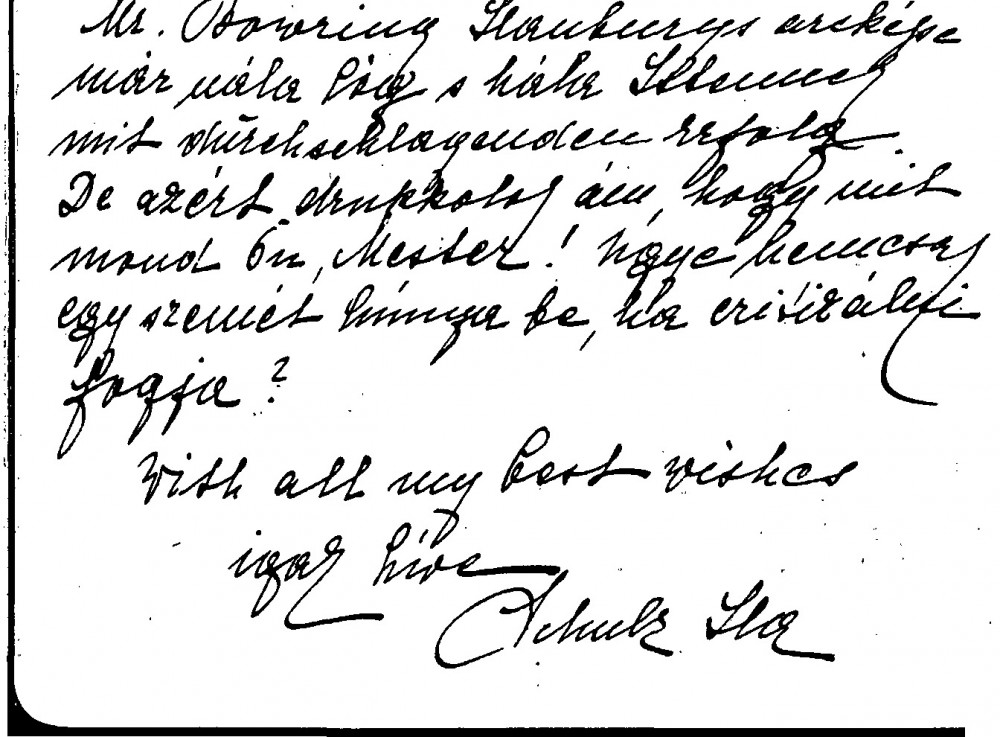 Mr. Bowring Hanburys arcképe
már nála lóg s hála Istennek
mit durchschlagenden Erfolg.
De azért drukkolok ám, hogy mit
mond Ön, Mester! Ugye nemcsak
egy szemét húnyja be, ha critizálni
fogja?
With all my best wishes
igaz híve
Schulz Ila